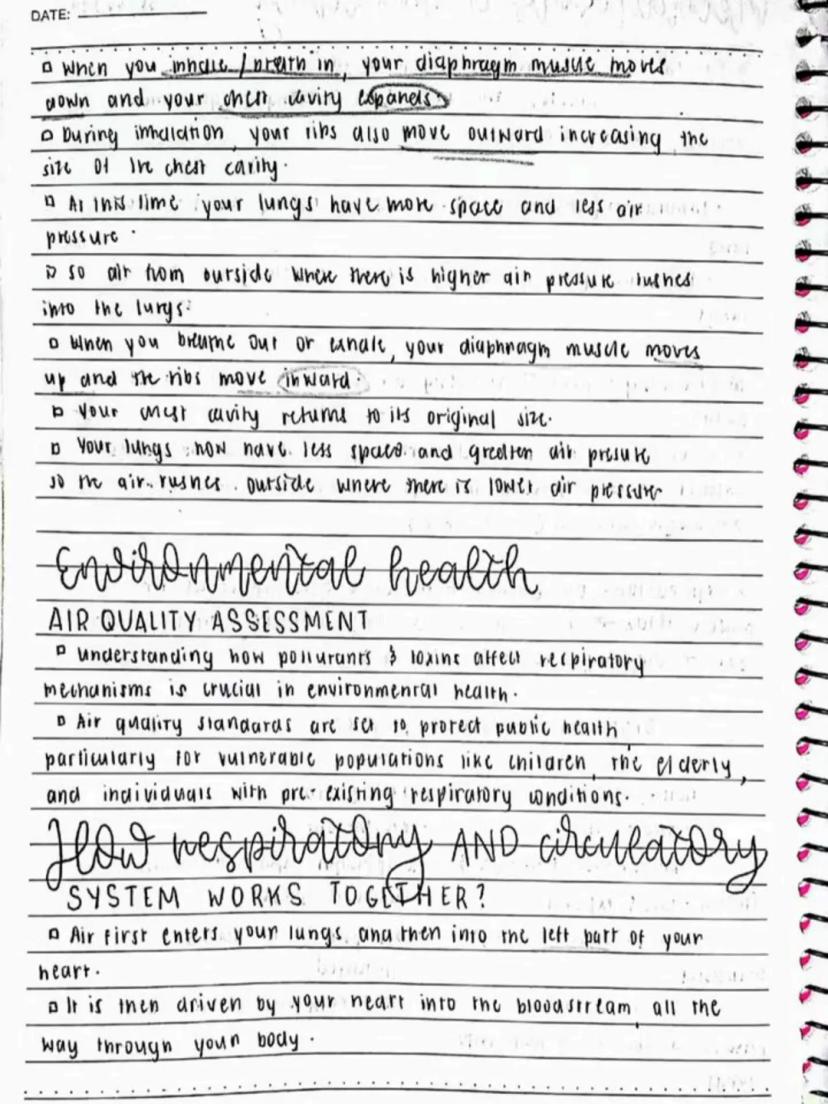 DATE:
When you inhale / breath in, your diaphragm muscle moves
down and your chest cavity expands
During inhalation, your ribs also move outward increasing the
size of the chest cavity.
At this time your lungs have more space and less air
pressure.
So air from outside where there is higher air pressure rushes
into the lungs.
When you breathe out or exhale, your diaphragm muscle moves
up and the ribs move inward.
Your chest cavity returns to its original size.
Your lungs now have less space and greater air presure
so the air rushes outside where there is lower air pressure
Environmental health
AIR QUALITY ASSESSMENT
Understanding how pollutants & toxins affect respiratory
mechanisms is crucial in environmental health.
Air quality standards are set to protect public health
particularly for vulnerable populations like children, the elderly,
and individuals with pre-existing respiratory conditions.
How respiratory AND circulatory
SYSTEM WORKS TOGETHER?
Air first enters your lungs and then into the left part of your
heart.
It is then driven by your heart into the bloodstream, all the
way through your body.